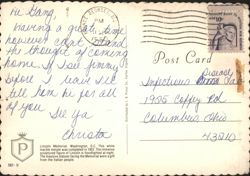 Hi Gang,
Having a great time
however can't stand
the thought of coming
home. If I see Jimmy
before I leave I'll
tell him hi for all
of you.
See Ya
Christa
PM
Post Card
Infectious Disease
1925 Coffey Rd
Columbus Ohio
43210
P
Lincoln Memorial, Washington, D.C. This white
marble temple was completed in 1922. The massive
sculptured figure of Lincoln is floodlighted at night.
The massive statues facing the Memorial were
from the Italian people.